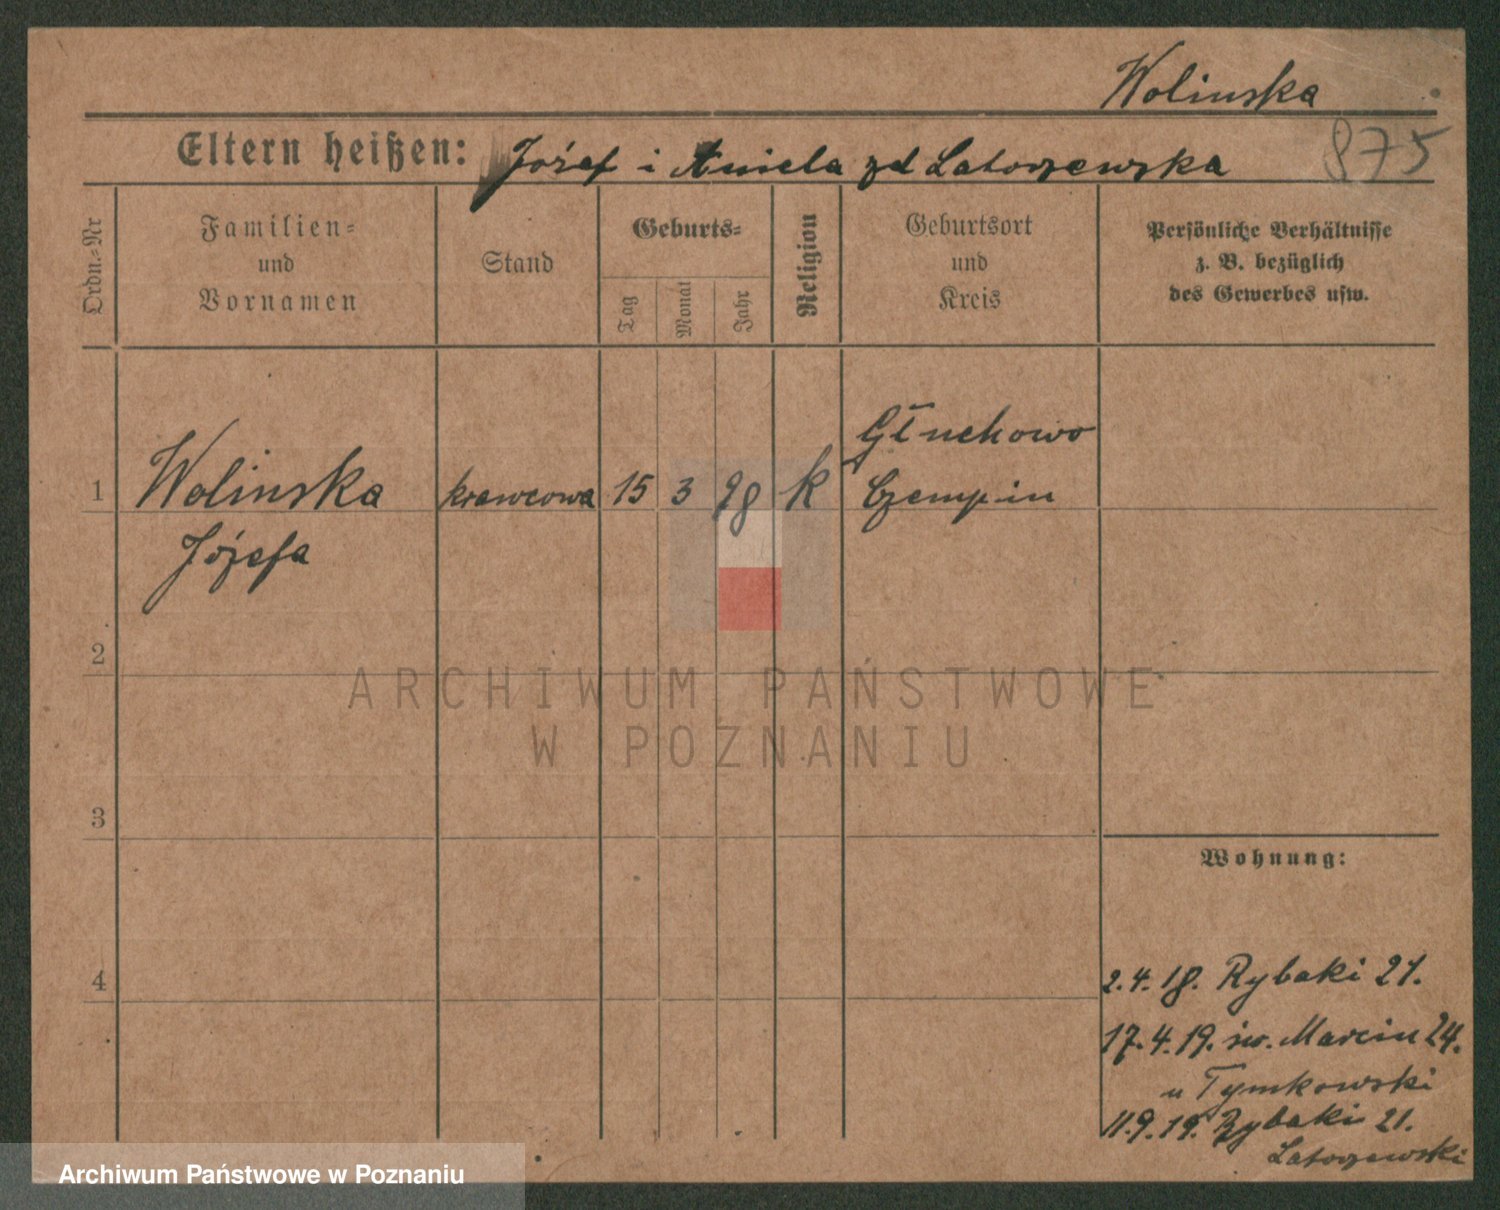 Wolinska
875
Eltern heißen: Józef i Aniela zd Latoszewska
Ordn.-Nr
Familien-
und
Vornamen
Stand
Geburts-
Tag
Monat
Jahr
Religion
Geburtsort
und
Kreis
Persönliche Verhältnisse
z. B. bezüglich
des Gewerbes usw.
1 Wolinska krawcowa 15 3 98 k Głuchowo
Czempin
Józefa
2
3
4
Wohnung:
2.4.18. Rybaki 21.
17.4.19. św. Marcin 24.
u Tymkowski
11.9.19. Rybaki 21.
Latoszewski
ARCHIWUM PAŃSTWOWE
W POZNANIU
Archiwum Państwowe w Poznaniu